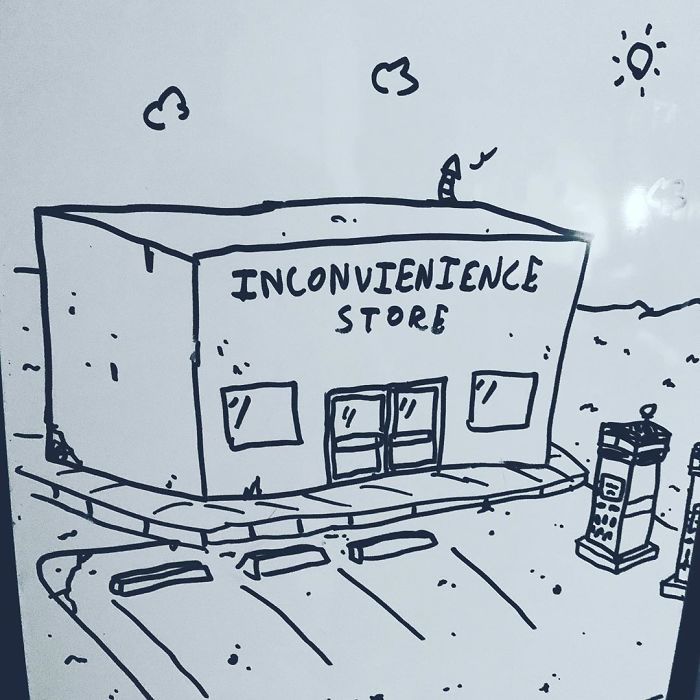 INCONVIENIENCE
STORE